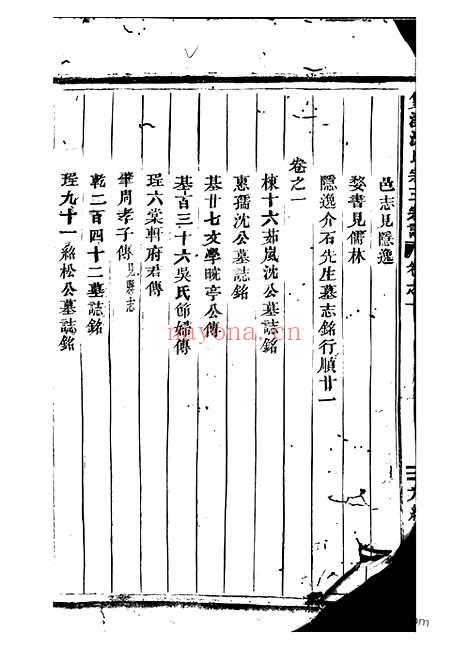 邑志見隱逸
婺書見儒林
隱逸介石先生墓志銘行順廿一
卷之一
棟十六茹嵐沈公墓誌銘
惠孺沈公墓誌銘
基廿七文學晥亭公傳
基百三十六吳氏節婦傳
珵六棠軒府君傳
肇周孝子傳見縣志
乾二百四十二墓誌銘
珵九十一紹松公墓誌銘
nayona.cn